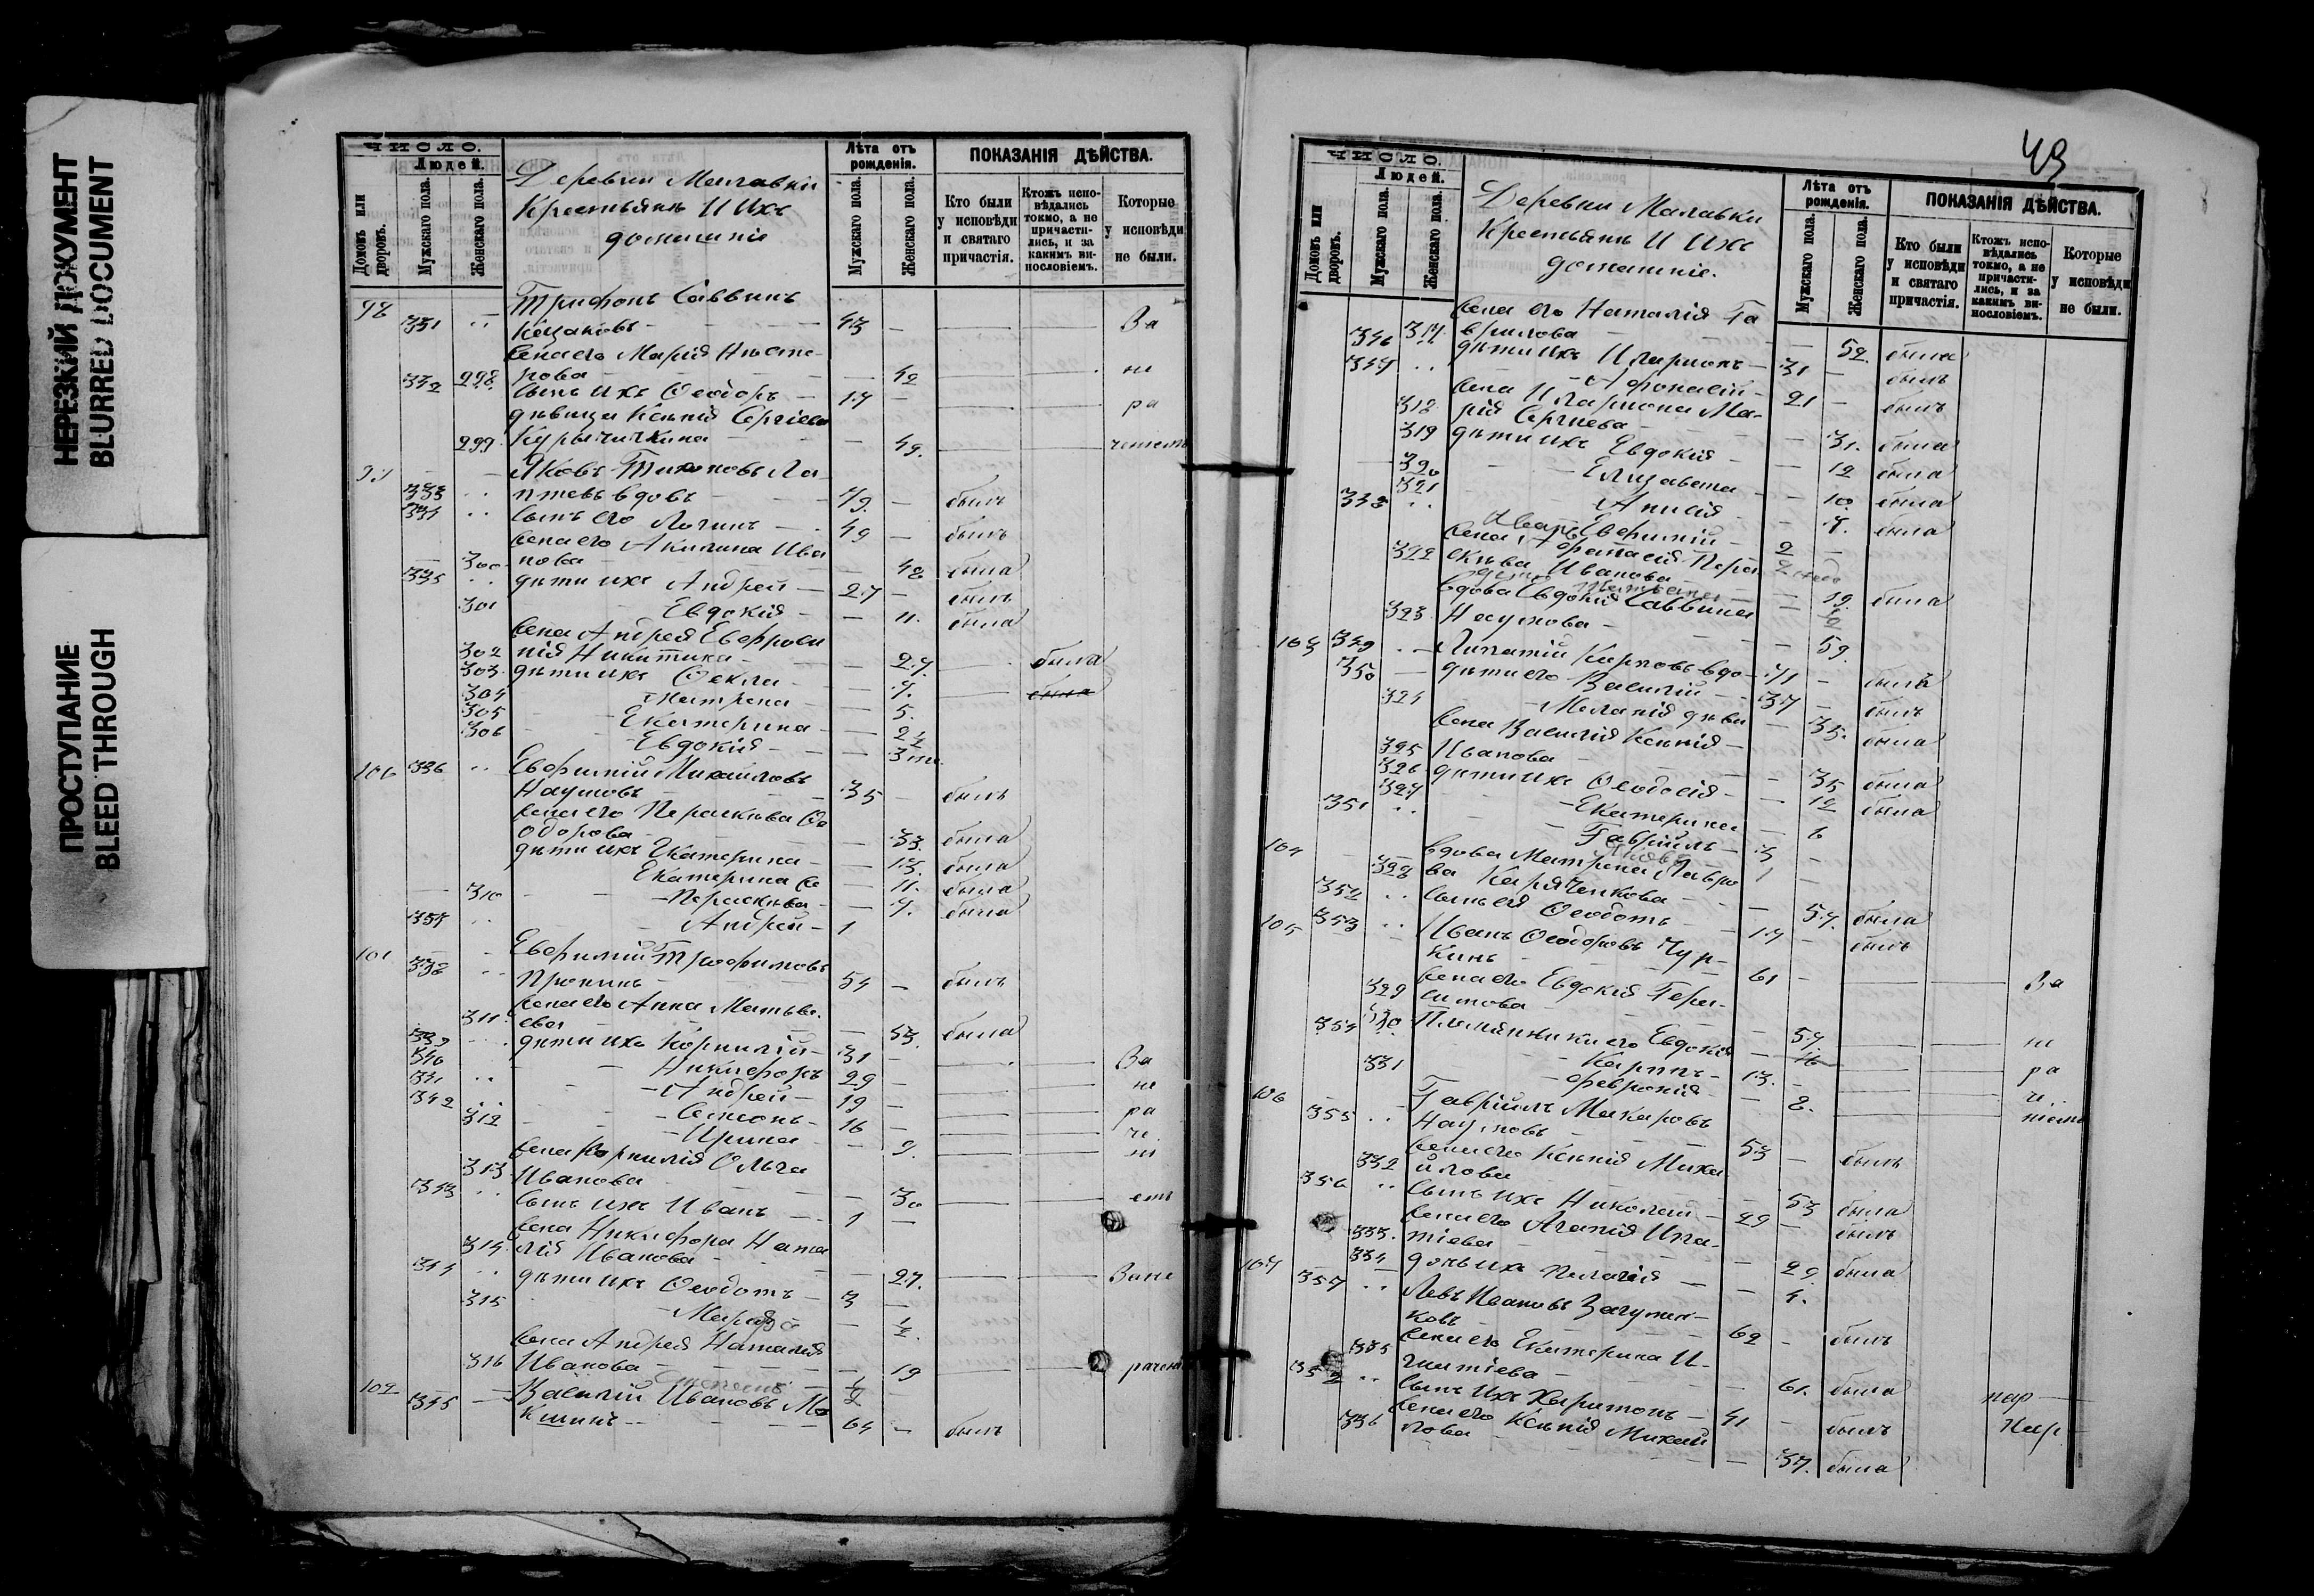 НЕРЕЗКИЙ ДОКУМЕНТ
BLURRED DOCUMENT
ПРОСТУПАНИЕ
BLEED THROUGH
ЧИСЛО.
Людей.
Домовъ или дворовъ.
Мужскаго пола.
Женскаго пола.
Деревни Малавки
Крестьянъ И Ихъ
домашніе
Лѣта отъ рожденія.
Мужскаго пола.
Женскаго пола.
ПОКАЗАНІЯ ДѢЙСТВА.
Кто были у исповѣди и святаго причастія.
Ктожъ исповѣдались токмо, а не причастились, и за какимъ винословіемъ.
Которые у исповѣди не были.
98 Трифонъ Саввинъ
331 Казаковъ 43 — За
Жена его Марія Несте-
298 рова — 42 не
332 Сынъ ихъ Ѳеодоръ 17 — ра
дѣвица Ксенія Сергіева
299 — 49. чтеніемъ
Яковъ Тихоновъ Ла-
333 птевъ вдовъ 79. — былъ
334 Сынъ его Логинъ 49 — былъ
Жена его Акилина Ива
300 нова — 48 была
335 дѣти ихъ Андрей 27 — былъ
301 Евдокія — 11. была
Жена Андрея Евфроси
302 нія Никитина — 27. была
303 дѣти ихъ Ѳекла — 7. была
304 Матрена — 5.
305 Екатерина — 2½
306 Евдокія — 3 м.
100 336 Евфимій Михайловъ
Наумовъ 35 — былъ
Жена его Параскева Ѳе
одорова — 33. была
дѣти ихъ Екатерина — 13. была
Екатерина — 11. была
310 Параскева — 7. была
337 Андрей 1
101 Евфимій Трофимовъ
338 Пронинъ 54 — былъ
Жена его Анна Матвѣ
311 ева — 53. была
339 дѣти ихъ Корнилій 31 — За
340 Никифоръ 29 — не
341 Андрей 19 — ра
342 Самсонъ 16 — че
312 Ирина — 9. ні
Жена Корнилія Ольга
313 Иванова — 30 емъ
343 Сынъ ихъ Иванъ 1 —
Жена Никифора Ната
314 лія Иванова — 27. Зане
344 дѣти ихъ Ѳеодотъ 3 —
315 Марія — ½
Жена Андрея Наталія
316 Иванова — 19
102 Василій Ивановъ Мо
345 кшинъ 64 — былъ
43
ЧИСЛО.
Людей.
Домовъ или дворовъ.
Мужскаго пола.
Женскаго пола.
Деревни Малавки
Крестьянъ И Ихъ
домашніе.
Лѣта отъ рожденія.
Мужскаго пола.
Женскаго пола.
ПОКАЗАНІЯ ДѢЙСТВА.
Кто были у исповѣди и святаго причастія.
Ктожъ исповѣдались токмо, а не причастились, и за какимъ винословіемъ.
Которые у исповѣди не были.
Жена его Наталія Га
317 врилова — 52. была
346 дѣти ихъ Иларионъ 31 — былъ
347 Афонасій 21 — былъ
Жена Илариона Ма-
318 рія Сергиева — 31. была
319 дѣти ихъ Евдокія — 12 была
320 Елизавета — 10 была
321 Анисія — 7. была
348 Евфимій 2 —
Жена Афонасія Пара
322 скѣва Иванова — 19. была
вдова Евдокія Саввина
323 Наумова — 59.
103 349 Ипатій Карповъ вдо 71 — былъ
350 дѣти его Василій 37 — былъ
324 Меланія дѣви — 35. была
Жена Василія Ксенія
325 Иванова — 35 была
326 дѣти ихъ Ѳеодосія — 12 была
327 Екатерина — 6
351 Гавріилъ 3 —
104 вдова Матрена Лавро
328 ва — 57. была
352 Сынъ ея Ѳеодотъ 17 — былъ
105 353 Иванъ Ѳеодоровъ Чур-
кинъ 61 — За
Жена его Евдокія Гера-
329 симова — 57. не
330 Племянники его Евдокія — ра
354 Карпъ 13. — че
331 Февронія — 8. ніемъ
106 Гавріилъ Макаровъ
355 Наумовъ 53 — былъ
Жена его Ксенія Миха
332 йлова — 53 была
356 Сынъ ихъ Николай 29 — былъ
Жена его Агапія Ипа-
333 тіева — 29. была
334 дочь ихъ Пелагія — 4.
107 Левъ Ивановъ Загумен-
357 ковъ 62 — былъ
Жена его Екатерина И-
335 гнатіева — 61. была
358 Сынъ ихъ Харитонъ 41 — былъ
Жена его Ксенія Михай
336 лова — 37. была